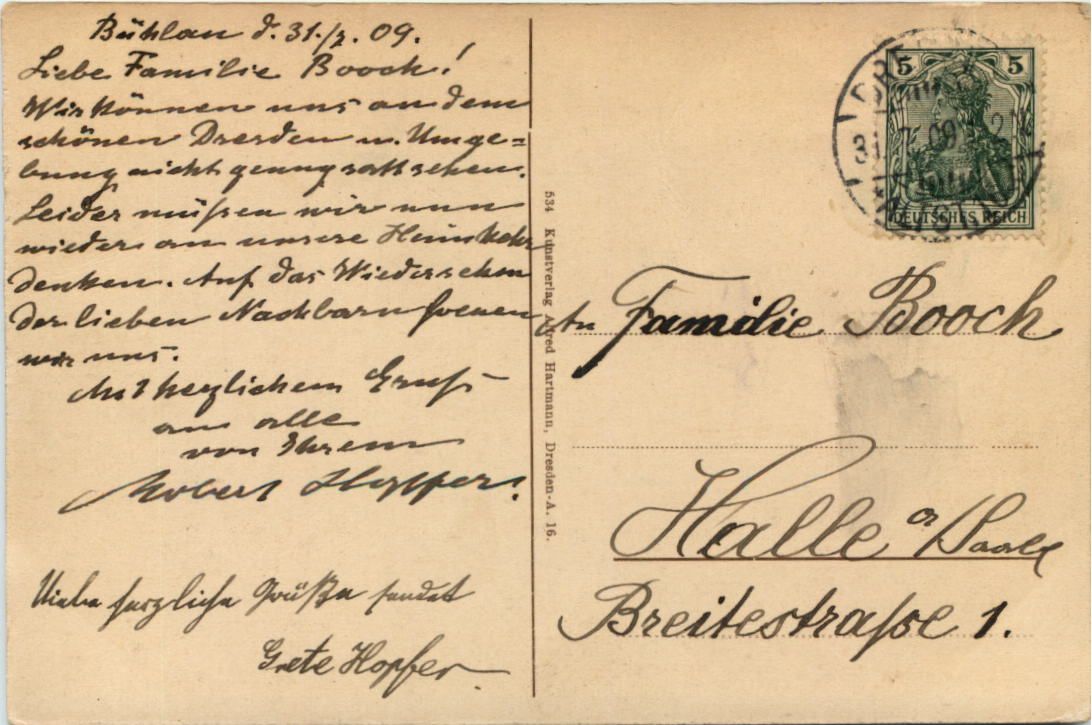 Bühlau d. 31./7. 09.
Liebe Familie Booch!
Wir können uns an dem
schönen Dresden u. Umge=
bung nicht genug satt sehen.
Leider müßen wir nun
wieder an unsere Heimkehr
denken. Auf das Wiedersehen
der lieben Nachbarn freuen
wir uns.
Mit herzlichem Gruß
an alle
von Ihrem
Robert Hopfer.
Viele herzliche Grüße sendet
Grete Hopfer
534 Kunstverlag Alfred Hartmann, Dresden-A. 16.
5 5
DEUTSCHES REICH
DRE
31. 7. 09
ALTST
An Familie Booch
Halle a/Saale
Breitestraße 1.